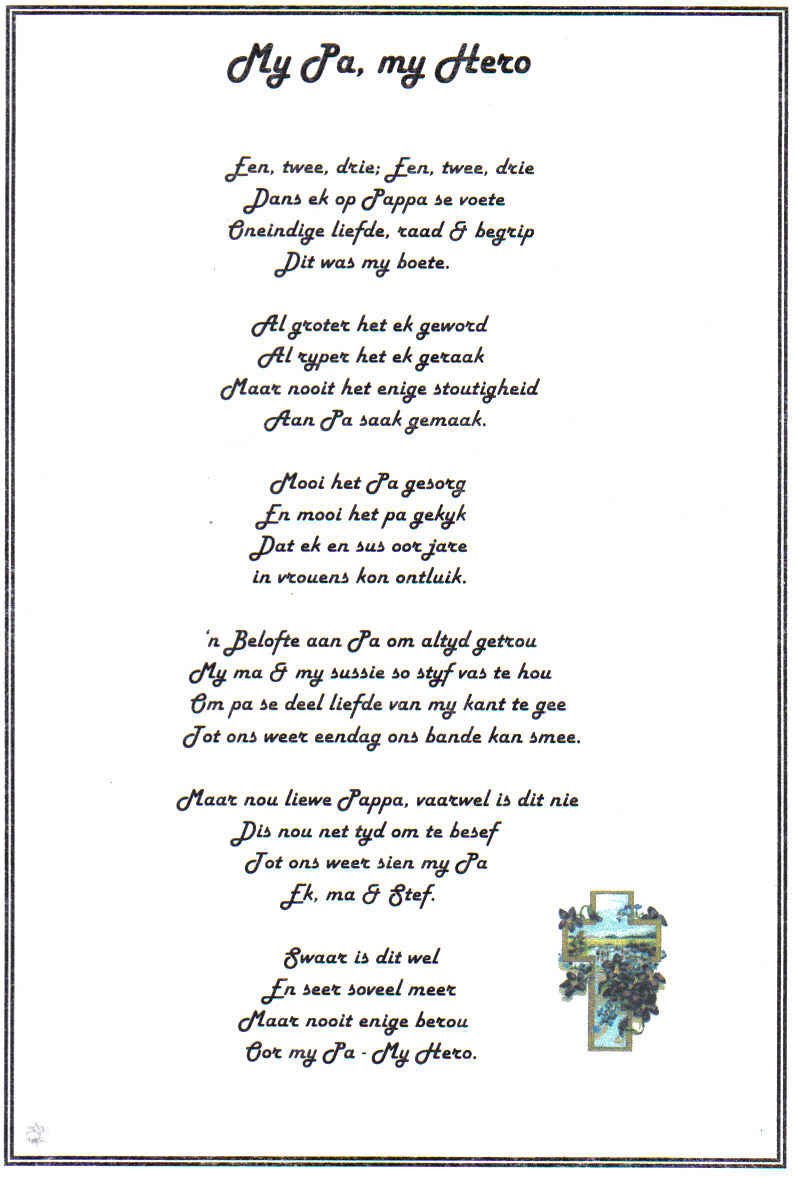 My Pa, my Hero
Een, twee, drie; Een, twee, drie
Dans ek op Pappa se voete
Oneindige liefde, raad & begrip
Dit was my boete.
Al groter het ek geword
Al ryper het ek geraak
Maar nooit het enige stoutigheid
Aan Pa saak gemaak.
Mooi het Pa gesorg
En mooi het pa gekyk
Dat ek en sus oor jare
in vrouens kon ontluik.
'n Belofte aan Pa om altyd getrou
My ma & my sussie so styf vas te hou
Om pa se deel liefde van my kant te gee
Tot ons weer eendag ons bande kan smee.
Maar nou liewe Pappa, vaarwel is dit nie
Dis nou net tyd om te besef
Tot ons weer sien my Pa
Ek, ma & Stef.
Swaar is dit wel
En seer soveel meer
Maar nooit enige berou
Oor my Pa - My Hero.